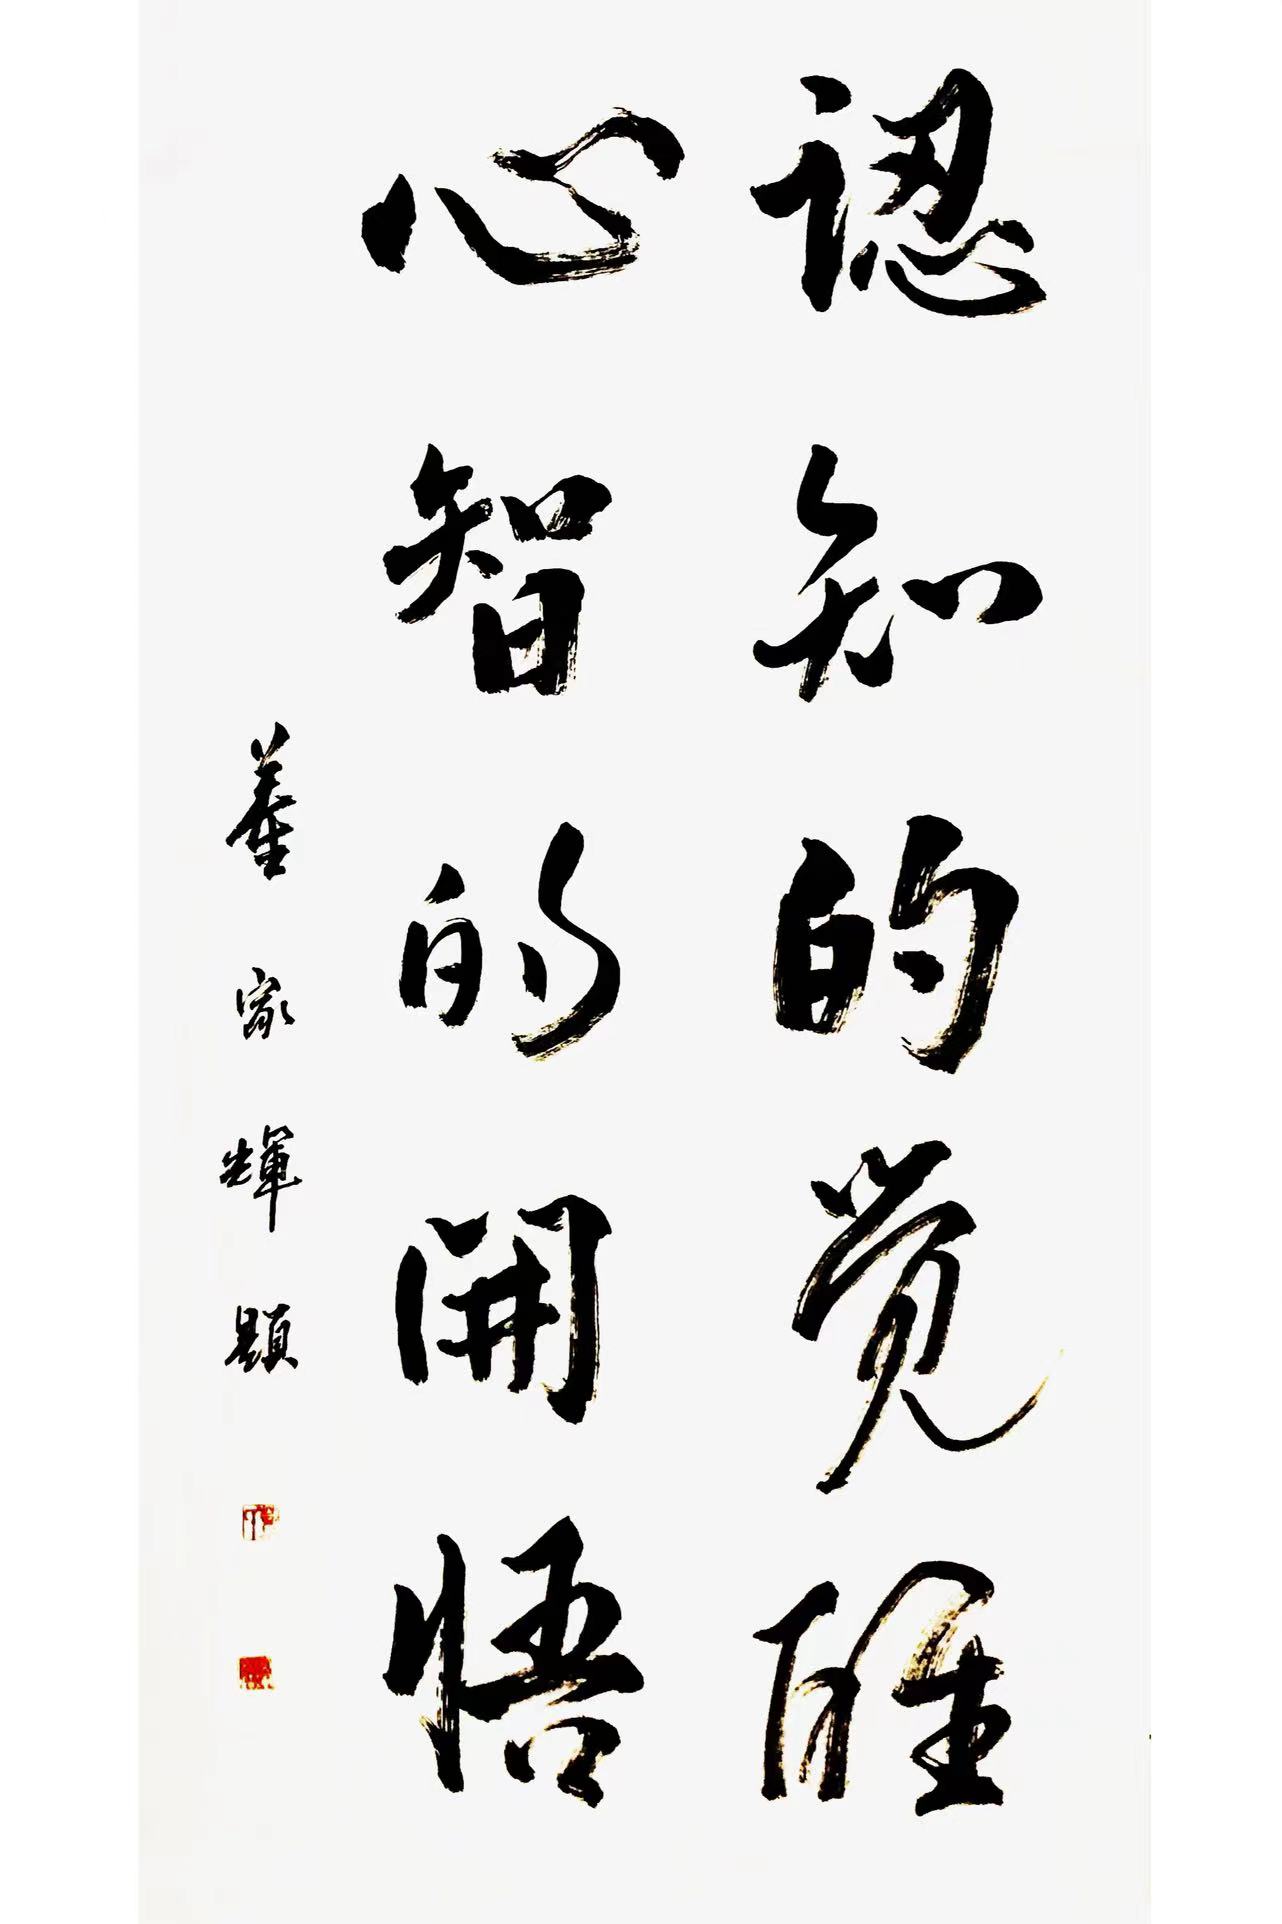 認知的觉醒
心智的開悟
家輝題